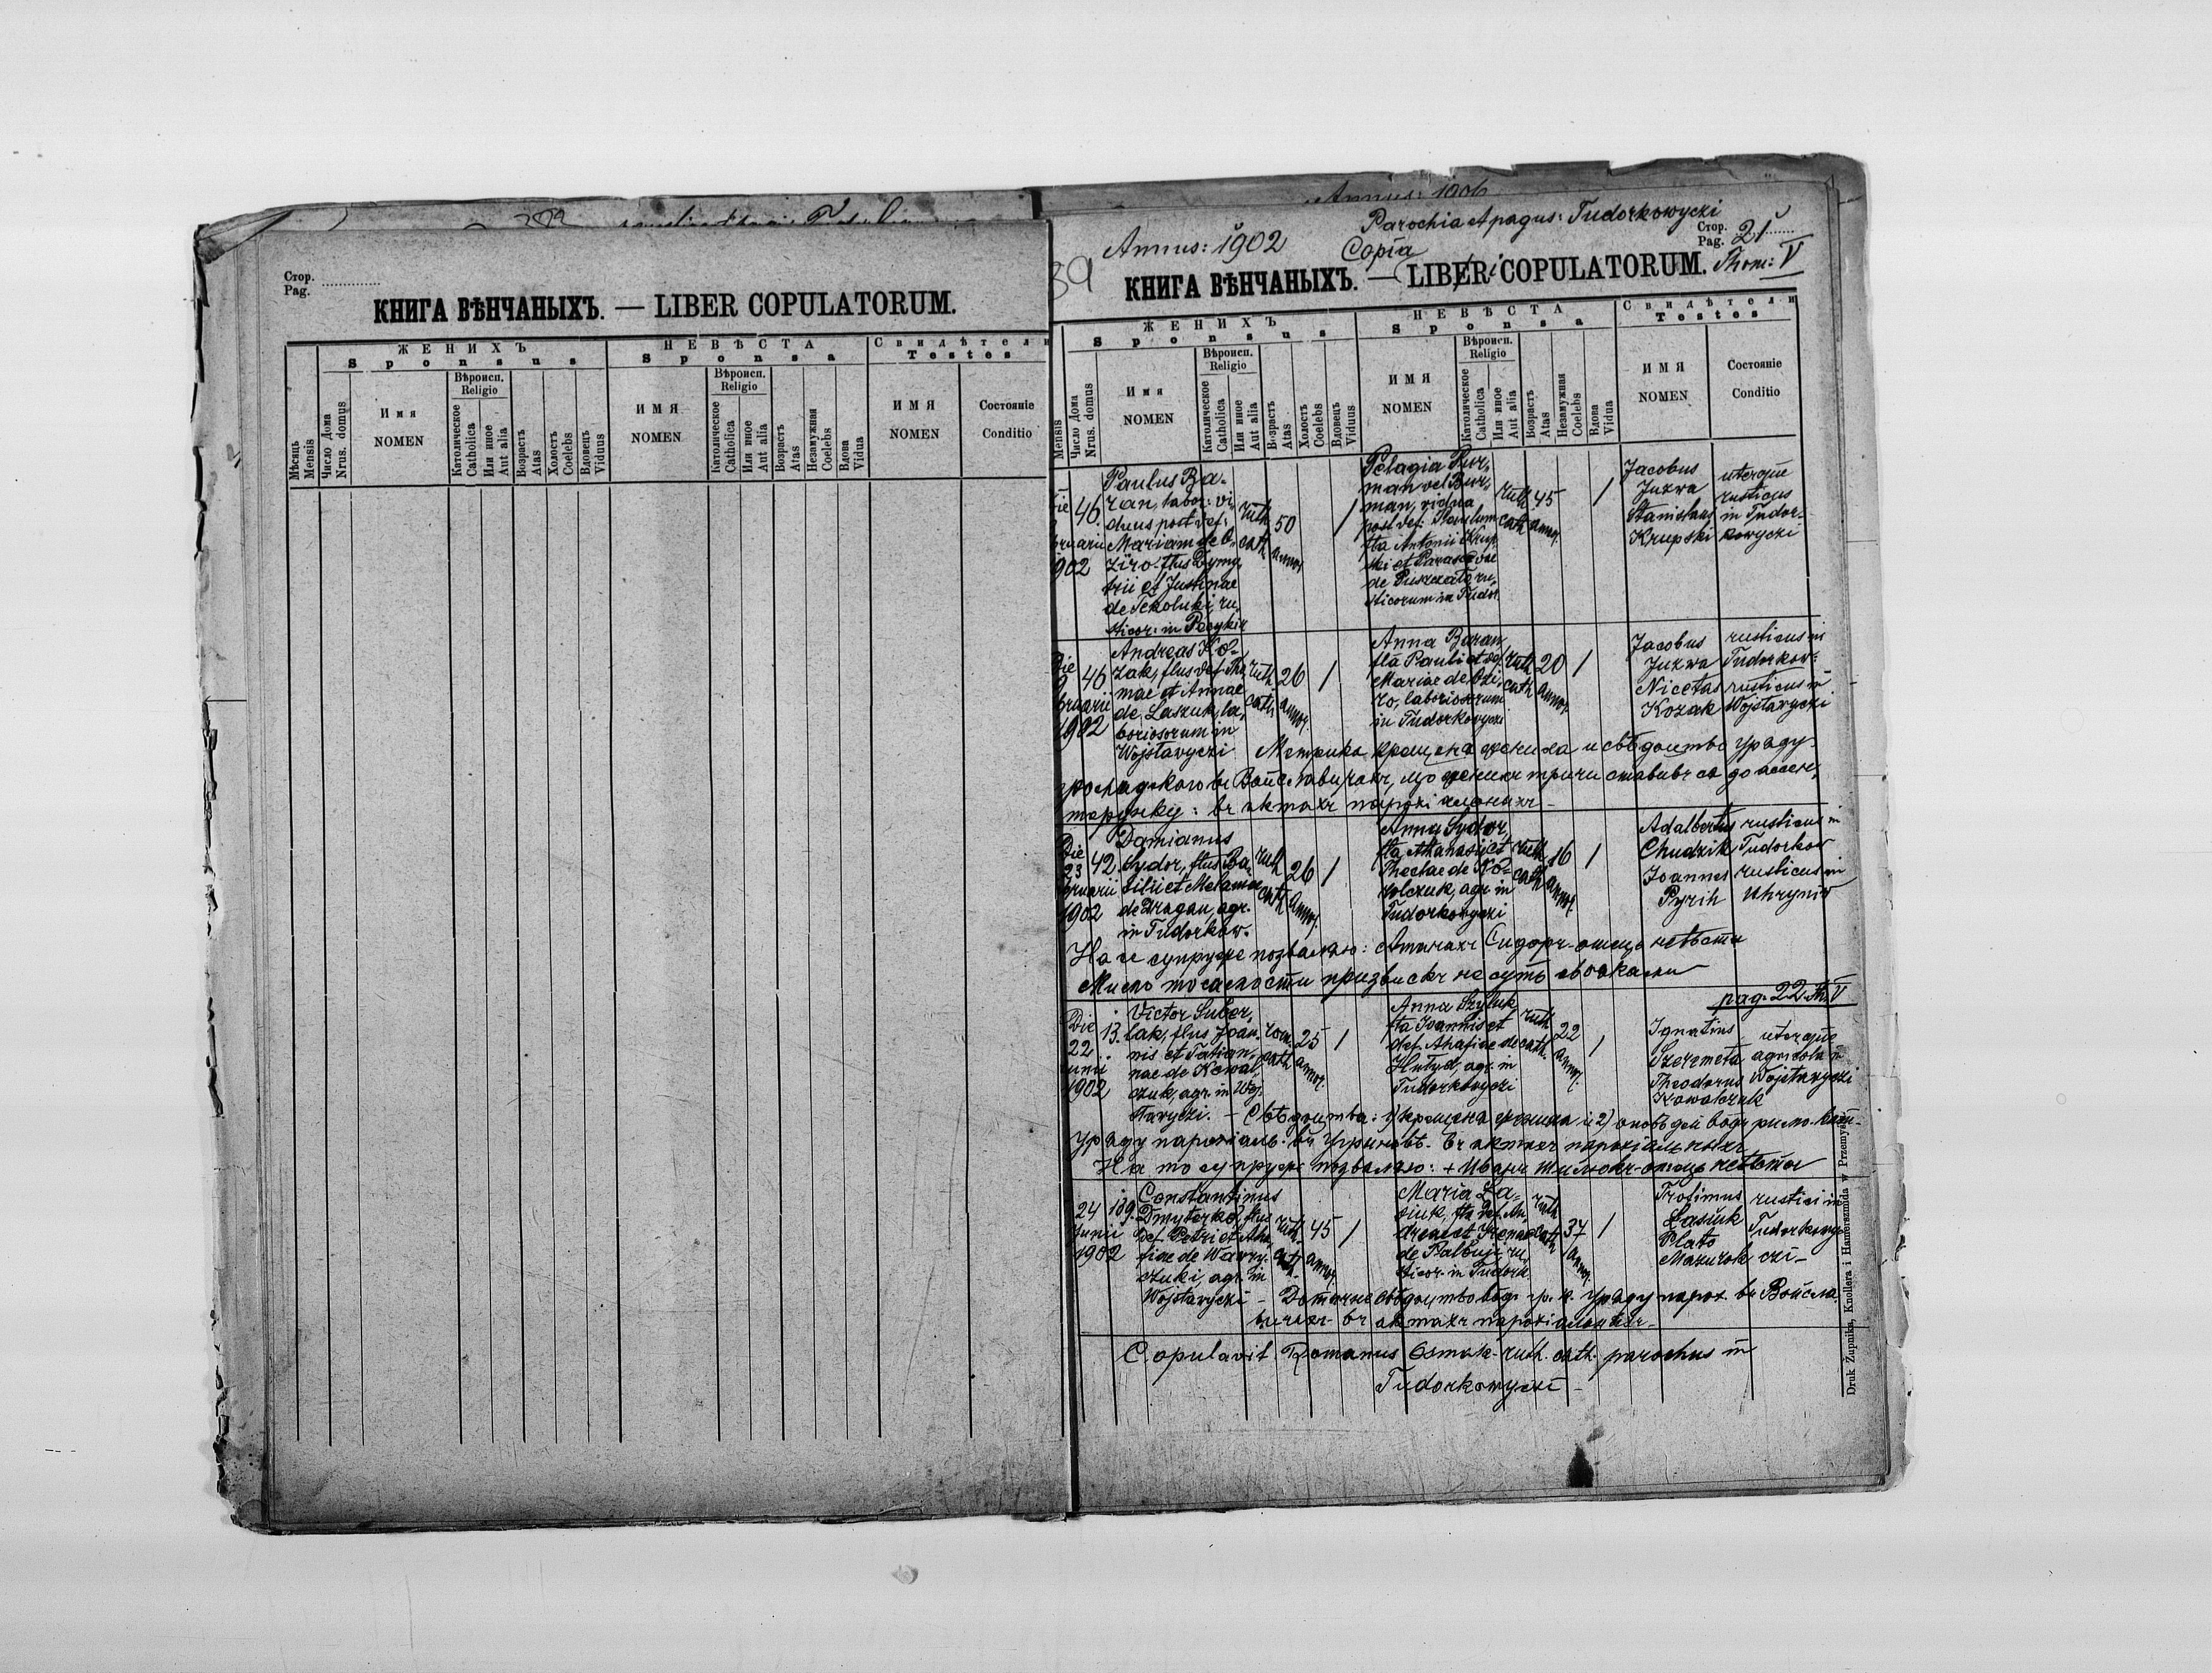 Стор.
Pag.
КНИГА ВѢНЧАНЫХЪ. — LIBER COPULATORUM.
Мѣсяць
Mensis
Число Дома
Nrus. domus
ЖЕНИХЪ
Sponsus
Имя
NOMEN
Вѣроисп.
Religio
Католическое
Catholica
Или иное
Aut alia
Возрастъ
Atas
Холостъ
Coelebs
Вдовецъ
Viduus
НЕВѢСТА
Sponsa
ИМЯ
NOMEN
Вѣроисп.
Religio
Католическое
Catholica
Или иное
Aut alia
Возрастъ
Atas
Незамужная
Coelebs
Вдова
Vidua
Свидѣтели
Testes
ИМЯ
NOMEN
Состояніе
Conditio
Annus: 1906
Parochia et pagus: Tudorkowyczi
Annus: 1902
Copia
Стор.
Pag. 21
КНИГА ВѢНЧАНЫХЪ. — LIBER COPULATORUM. Thom: V
Mensis
Число Дома
Nrus. domus
ЖЕНИХЪ
Sponsus
Имя
NOMEN
Вѣроисп.
Religio
Католическое
Catholica
Или иное
Aut alia
Возрастъ
Atas
Холостъ
Coelebs
Вдовецъ
Viduus
НЕВѢСТА
Sponsa
ИМЯ
NOMEN
Вѣроисп.
Religio
Католическое
Catholica
Или иное
Aut alia
Возрастъ
Atas
Незамужная
Coelebs
Вдова
Vidua
Свидѣтели
Testes
ИМЯ
NOMEN
Состояніе
Conditio
46.
Paulus Ba-
ran, labor: vi-
duus post def:
Mariam de O-
ziro- flus Dymy-
trii et Justinae
de Sekoluki, ru-
sticor: in
ruth
cath
50
annor
/
Pelagia
man vel Bur-
man, vidua
post def: Paulum
fta Antonii Krup-
ski et Parascevae
de
sticorum in Tudor
ruth
cath
45
annor.
/
Jacobus
Juzwa
Stanislaus
Krupski
uterque
rusticus
in Tudor-
kowyczi
Die
9
1902
46
Andreas Ko-
zak, flus def Tho-
mae et Annae
de Laszuk, la-
boriosorum in
Wojstawyczi
ruth
cath
26
annor.
/
Anna Baran
fta Pauli et def.
Mariae de Ozi-
ro, laboriosorum
in Tudorkowyczi
ruth
cath
20
annor.
/
Jacobus
Juzwa
Nicetas
Kozak
rusticus in
Tudorkow:
rusticus in
Wojstawyczi
Метрика крещена жениха и свѣдоцтво уряду
громадского въ Войславичахъ, що женихъ тричи ставивъ ся до ассен-
терунку: въ актахъ парохіальныхъ -
Die
23
1902
42.
Damianus
Sydor, flus Ba-
silii et Melaniae
de Dragan, agr.
in Tudorkow.
ruth
cath
26
annor.
/
Anna Sydor
fta Athanasii et
Theclae de Ko-
walczuk, agr. in
Tudorkowyczi
ruth
cath
16
annor.
/
Adalbertus
Chudzik
Joannes
Pyrih
rusticus in
Tudorkow
rusticus in
Uhryniw
На се супруже позваляю: Атанахъ Сидоръ-отець невѣсти
Мимо тосамости призвискъ не суть свояками
pag. 22. Th. V
Die
22
Junii
1902
13.
Victor Suber-
lak, flus Joan-
nis et Tatian-
nae de Kowal-
czuk, agr. in Woj-
stawyczi.
rom.
cath
25
annor.
/
Anna Szyluk
fta Joannis et
def. Ahafiae de
Hutyd, agr. in
Tudorkowyczi
ruth
cath.
22
annor.
/
Ignatius
Szeremeta
Theodorus
Kowalczuk
uterque
agricola in
Wojstawyczi
- Свѣдоцтва: 1) крещена жениха і 2) оповѣдей вôдъ римо-кат.
уряду парохіаль. въ Угриновѣ. Въ актахъ парохіальныхъ
На то супруже позваляю: + Иванъ Шилюкъ-отець невѣсты
24
Junii
1902
139.
Constantinus
Dmyterko, flus
def. Petri et Aha-
fiae de Wawry-
czuki, agr. in
Wojstawyczi
ruth.
cath.
45
annor.
/
Maria La-
siuk, fta def. An-
dreae et Irenae
de Palbuj, ru-
sticor. in Tudork.
ruth
cath
37
annor.
/
Trofimus
Lasiuk
Plato
Mazurok
rustici in
Tudorkowy-
czi -
- Дотичне свѣдоцтво вôдъ гр. к. уряду парох. въ Войсла-
вичахъ - въ актахъ парохіальныхъ -
Copulavit Romanus Osmak - ruth. cath. parochus in
Tudorkowyczi -
Druk Żupnika, Knollera i Hamerszmida w Przemyślu